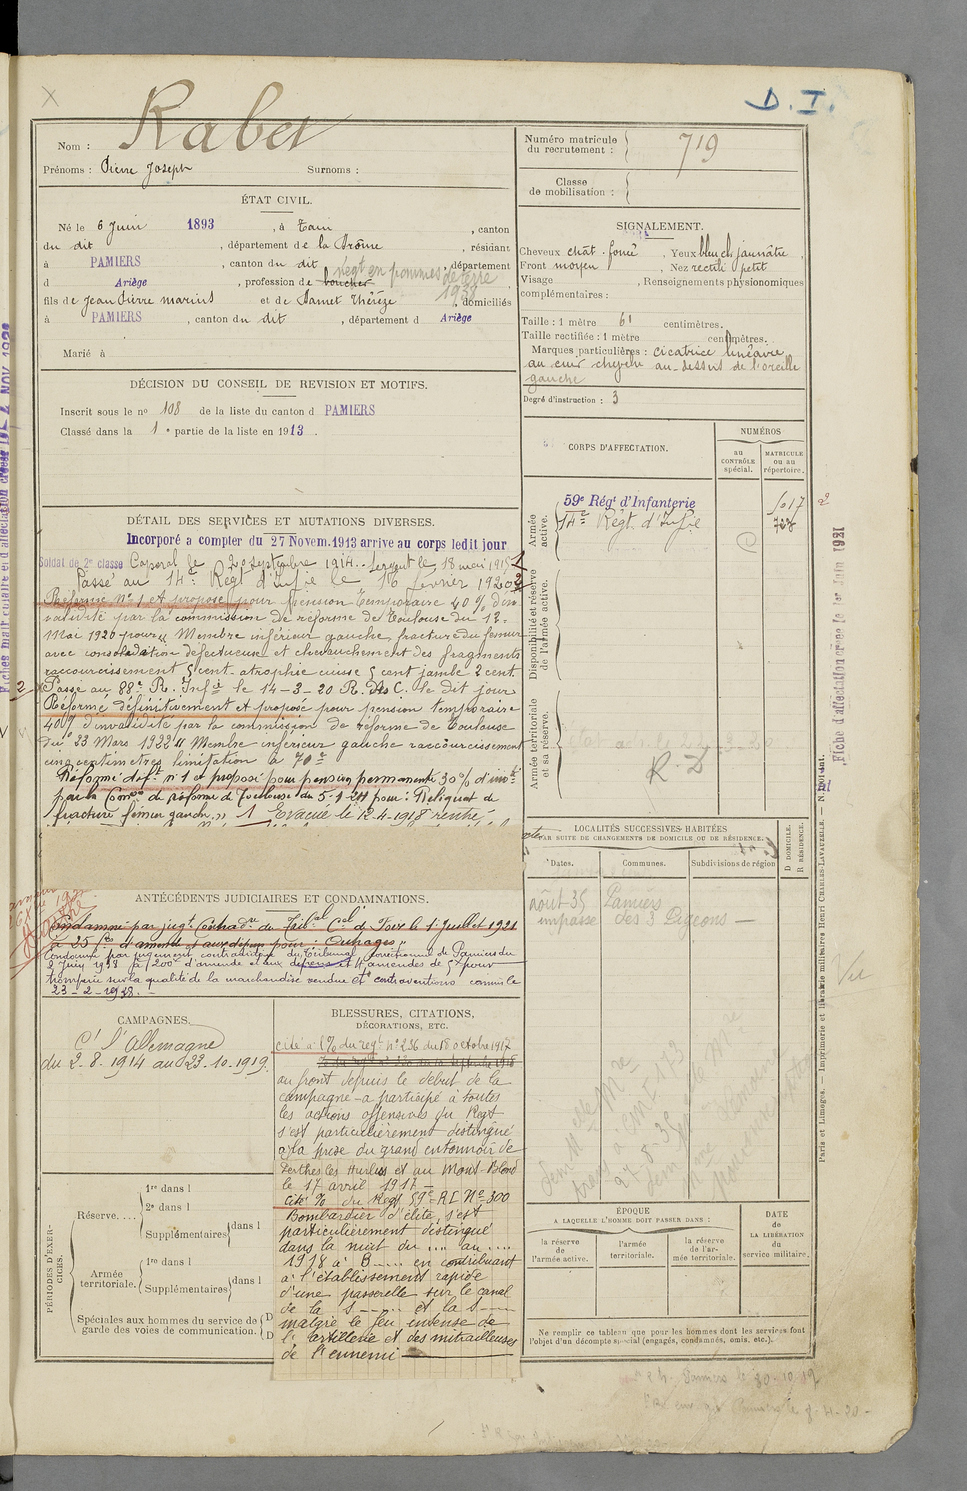 D. I.
Nom : Rabet
Prénoms : Pierre Joseph Surnoms :
ÉTAT CIVIL.
Né le 6 Juin 1893, à Tain, canton
du dit, département de la Drôme, résidant
à PAMIERS, canton du dit, département
d Ariège, profession de boucher
Négt en pommes de terre
1938
fils de Jean Pierre Marius et de Damet Thérèze, domiciliés
à PAMIERS, canton du dit, département d Ariège
Marié à
DÉCISION DU CONSEIL DE REVISION ET MOTIFS.
Inscrit sous le no 108 de la liste du canton d PAMIERS
Classé dans la 1e partie de la liste en 1913.
DÉTAIL DES SERVICES ET MUTATIONS DIVERSES.
Incorporé a compter du 27 Novem. 1913 arrive au corps ledit jour
Soldat de 2e classe Caporal le 20 septembre 1914. Sergent le 18 mai 1915
Passé au 14e Régt d'Infie le 16 février 1920
Réformé No 1 et proposé pour pension temporaire 40 % d'in
validité par la commission de réforme de Toulouse du 13-
Mai 1920 pour " Membre inférieur gauche, fracture du femur
avec consolidation défectueuse et chevauchement des fragments
raccourcissement 5 cent. atrophie cuisse 5 cent jambe 2 cent.
Passé au 88e R. Infie le 14-3-20 R. des C. le dit jour
Réformé définitivement et proposé pour pension temporaire
40% d'invalidité par la commission de réforme de Toulouse
du 23 Mars 1922 " Membre inférieur gauche raccourcissement
cinq centimètres limitation à 70°
Réformé deft no 1 et proposé pour pension permanente 30 % d'invté
par la Comon de réforme de Toulouse du 5-1-24 pour : Reliquat de
fracture fémur gauche. " 1 Evacué le 12-4-1918 rentré
ANTÉCÉDENTS JUDICIAIRES ET CONDAMNATIONS.
Condamné par jugt Contradre du Tribal Cel de Foix le 1er Juillet 1921
à 25 frs d'amende et aux dépens pour : Outrages "
Condamné par jugement contradictoire du Tribunal Correctionnel de Pamiers du
Juin 1938 à 1200f d'amende et aux dépens et 4 amendes de 5f pour
tromperie sur la qualité de la marchandise vendue et contraventions commis le
23-2-1938.
CAMPAGNES.
Ct l'Allemagne
du 2.8.1914 au 23.10.1919.
BLESSURES, CITATIONS,
DÉCORATIONS, ETC.
Cité à l'% du regt No 236 du 18 octobre 1917
au front depuis le début de la
campagne - a participé à toutes
les actions offensives du Regt
s'est particulièrement distingué
à la prise du grand entonnoir de
Perthes les Hurlus et au Mont Blond
le 17 avril 1917 -
Cité % du Regt 59e RI No 300
Bombardier d'élite, s'est
particulièrement distingué
dans la nuit du .... au ....
1918 à B..... en contribuant
à l'établissement rapide
d'une passerelle sur le canal
de la S---- et la S----
malgré le feu intense de
l'artillerie et des mitrailleuses
de l'ennemi
PÉRIODES D'EXERCICES.
Réserve....
1re dans l
2e dans l
Supplémentaires dans l
Armée territoriale.
1re dans l
Supplémentaires dans l
Spéciales aux hommes du service de garde des voies de communication.
D
D
Numéro matricule du recrutement : 719
Classe de mobilisation :
SIGNALEMENT.
Cheveux chât. foncé, Yeux bleu ch. jaunâtre,
Front moyen, Nez rectili petit
Visage, Renseignements physionomiques
complémentaires :
Taille : 1 mètre 61 centimètres.
Taille rectifiée : 1 mètre centimètres.
Marques particulières : cicatrice linéaire
au cuir chevelu au-dessus de l'oreille
gauche
Degré d'instruction : 3
CORPS D'AFFECTATION.
NUMÉROS
au CONTRÔLE spécial.
MATRICULE ou au répertoire.
Armée active.
59e Régt d'Infanterie 5017
14e Régt. d'Infie
Disponibilité et réserve de l'armée active.
Armée territoriale et sa réserve.
R. D
LOCALITÉS SUCCESSIVES HABITÉES
PAR SUITE DE CHANGEMENTS DE DOMICILE OU DE RÉSIDENCE.
Dates.
Communes.
Subdivisions de région
D DOMICILE.
R RÉSIDENCE.
août 35 Pamiers
impasse des 3 Pigeons -
ÉPOQUE
A LAQUELLE L'HOMME DOIT PASSER DANS :
la réserve de l'armée active.
l'armée territoriale.
la réserve de l'armée territoriale.
DATE de LA LIBÉRATION du service militaire.
Ne remplir ce tableau que pour les hommes dont les services font
l'objet d'un décompte spécial (engagés, condamnés, omis, etc.).
Fiche d'affectation créée le 1er Juin 1921
Paris et Limoges. — Imprimerie et librairie militaires Henri CHARLES-LAVAUZELLE.
Vu